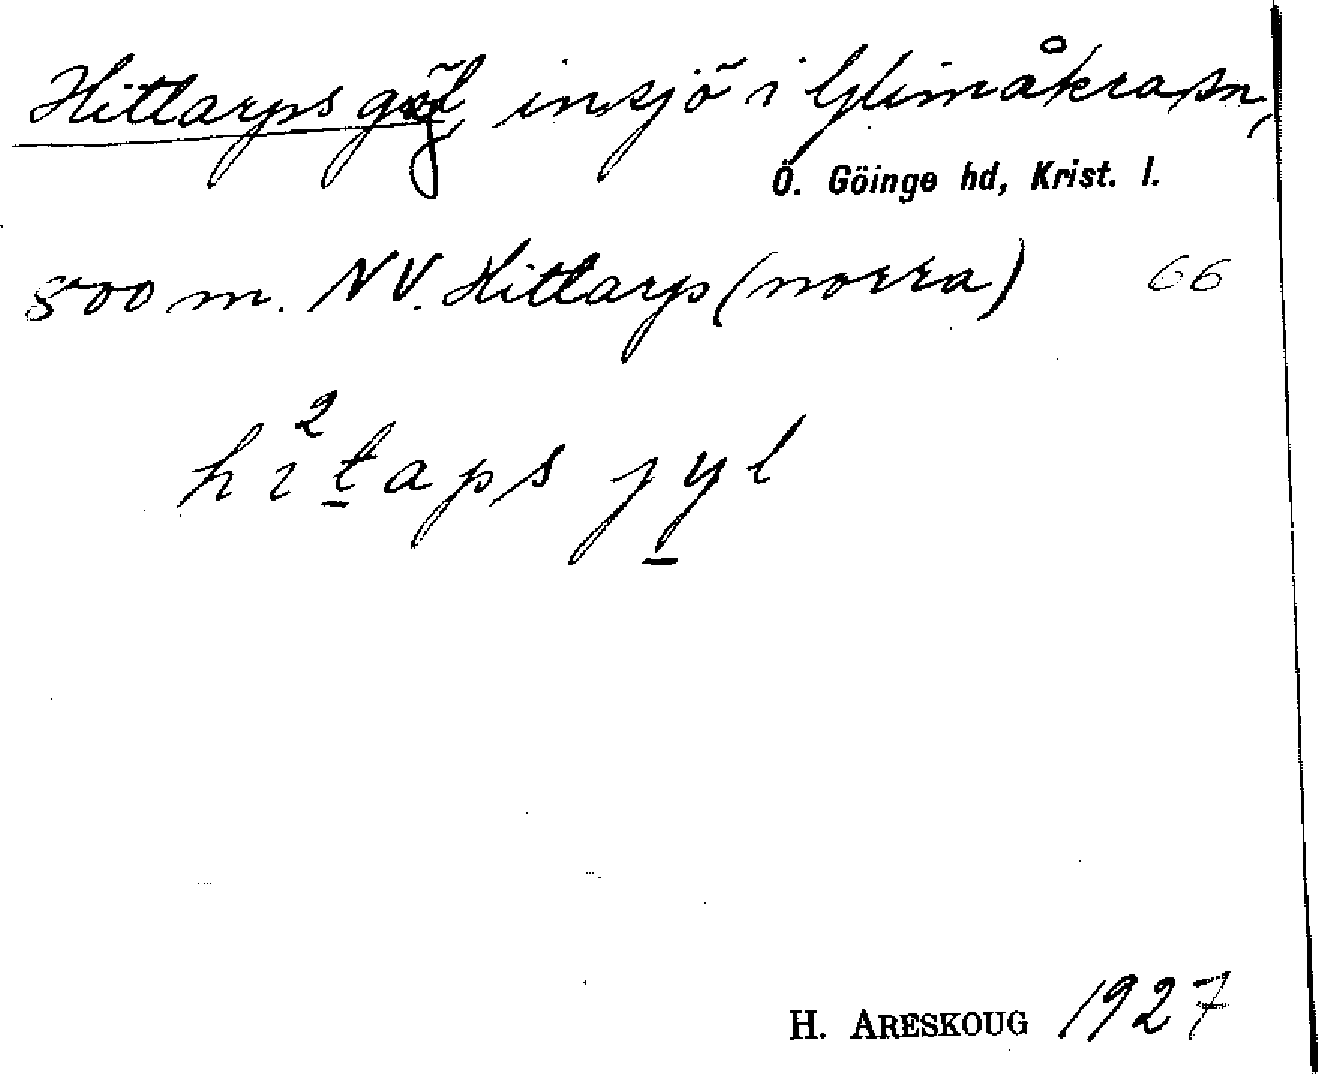 Hittarps göl insjö i Glimåkra sn,
Ö. Göinge hd, Krist. l.
800 m. NV. Hittarp (norra) 66
hi²taps jyl
H. ARESKOUG 1927